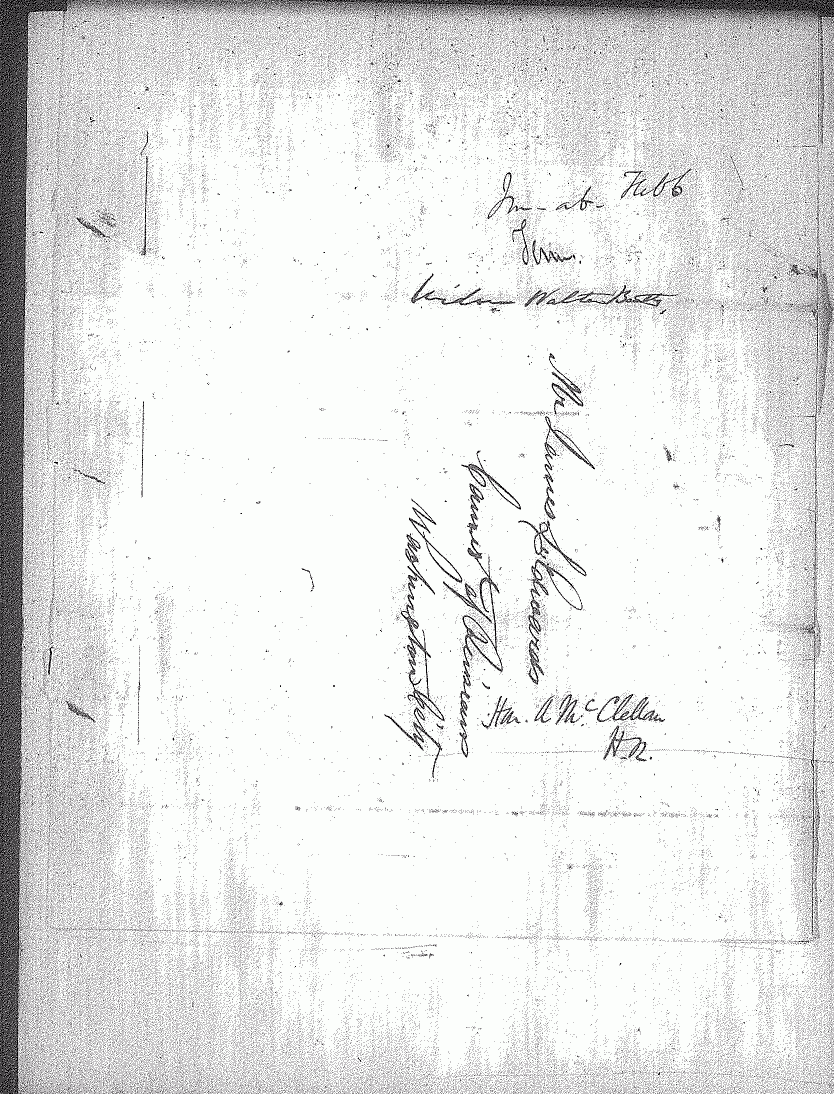 Tenn.
Widow Walter Betts,
Mr James L Edwards
Commisr of Pensions
Washington City
Hon. A McClellan
H.R.